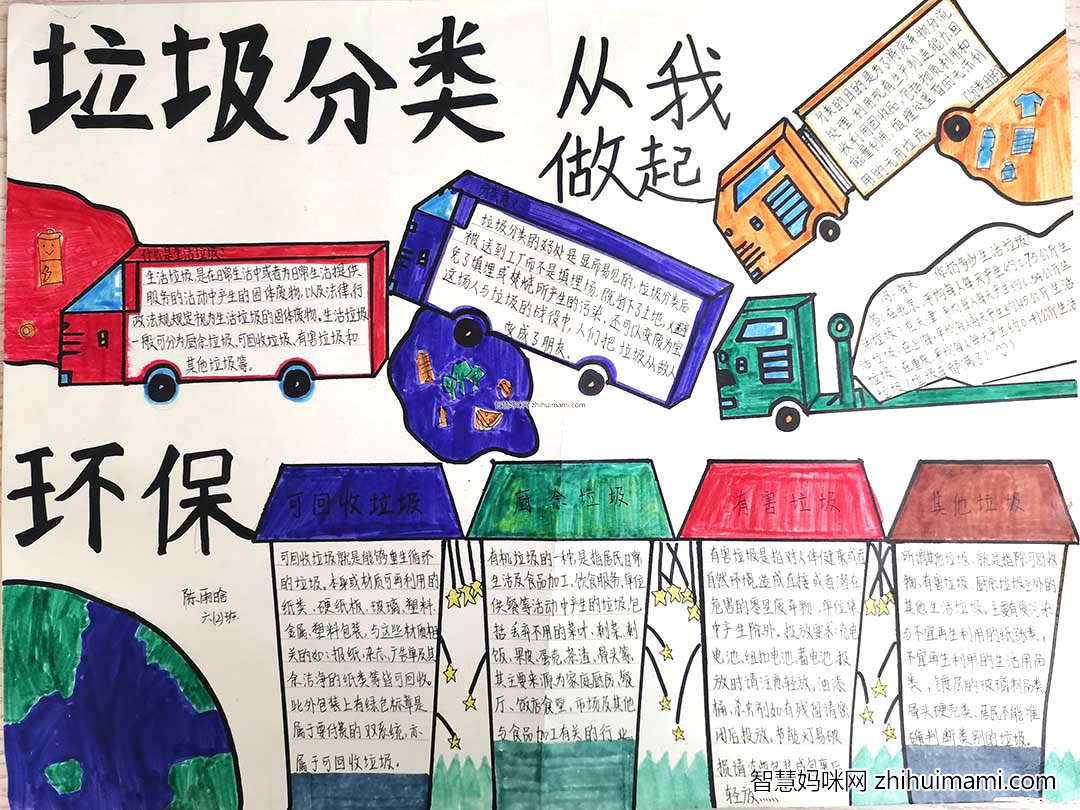 垃圾分类
从我
做起
分类的目的是为了将废弃物分流
处理,利用现有生产制造能力,回
收利用回收品,包括物质利用和
能量利用,填埋处置暂时无法利
用的无用垃圾。
什么是生活垃圾?
生活垃圾,是在日常生活中或者为日常生活提供
服务的活动中产生的固体废物,以及法律,行
政法规规定视为生活垃圾的固体废物。生活垃圾
一般可分为厨余垃圾、可回收垃圾、有害垃圾和
其他垃圾等。
垃圾分类的好处是显而易见的。垃圾分类后
被送到工厂而不是填埋场,既省下了土地,又避
免了填埋或焚烧所产生的污染,还可以变废为宝。
这场人与垃圾的战役中,人们把垃圾从敌人
变成了朋友。
智慧妈咪网 zhihuimami.com
环保
陈雨晗
六(2)班
可回收垃圾
可回收垃圾就是能够重生循环
的垃圾。本身或材质可再利用的
纸类、硬纸板、玻璃、塑料、
金属、塑料包装,与这些材质相
关的如:报纸、杂志、广告单及其
余洁净的纸类等皆可回收。
此外包装上有绿色标章是
属于要付费的双系统,亦
属于可回收垃圾。
厨余垃圾
有机垃圾的一种,是指居民日常
生活及食品加工、饮食服务、单位
供餐等活动中产生的垃圾,包
括丢弃不用的菜叶、剩菜、剩
饭、果皮、蛋壳、茶渣、骨头等,
其主要来源为家庭厨房、餐
厅、饭店食堂、市场及其他
与食品加工有关的行业
有害垃圾
有害垃圾是指对人体健康或者
自然环境造成直接或者潜在
危害的零星废弃物,单位集
中产生除外。投放要求:充电
电池、纽扣电池、蓄电池,投
放时请注意轻放,油漆
桶、杀虫剂如有残留请密
闭后投放,节能灯易破
轻放……
其他垃圾
所谓其他垃圾,就是指除可回收
物、有害垃圾、厨余垃圾之外的
其他生活垃圾。主要有废污染
与不宜再生利用的纸张类,
不宜再生利用的生活用品
类,镀层的玻璃制品类,
骨头硬壳类、居民不能准
确判断类别的垃圾。
智慧妈咪网 zhihuimami.com